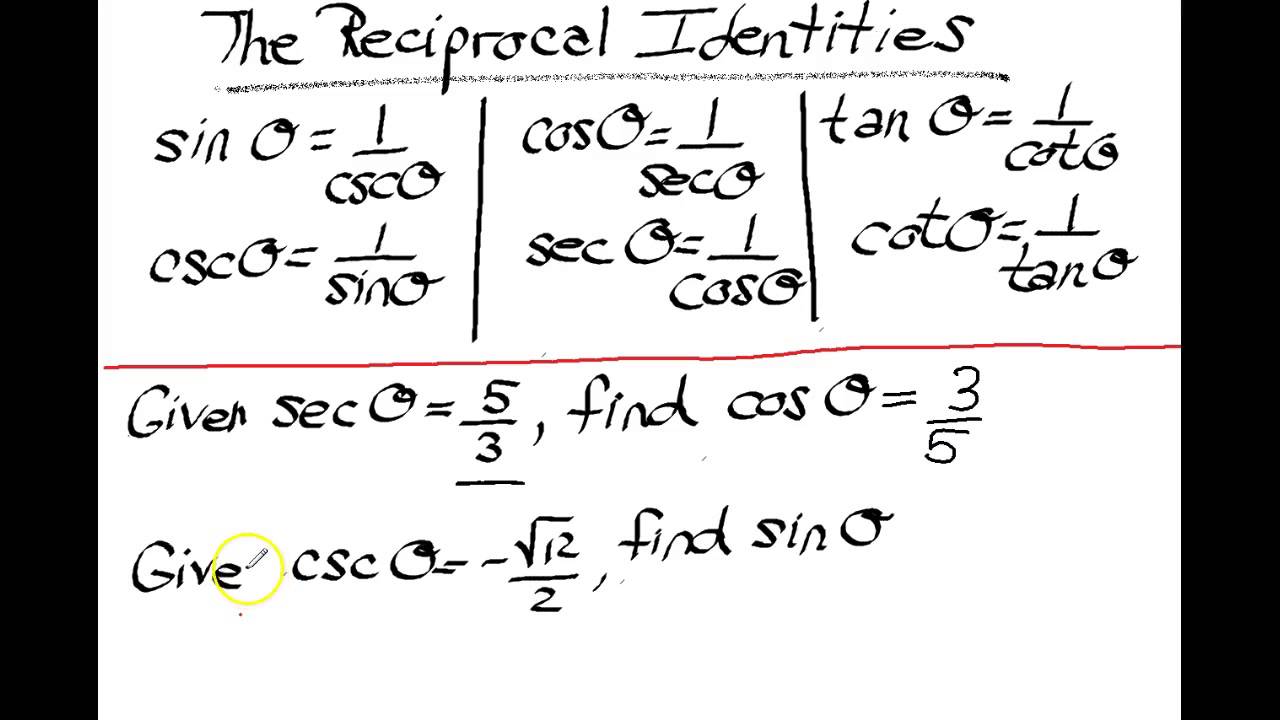 The Reciprocal Identities
sin θ = 1/cscθ | cosθ = 1/secθ | tan θ = 1/cotθ
cscθ = 1/sinθ | sec θ = 1/cosθ | cotθ = 1/tanθ
Given sec θ = 5/3, find cos θ = 3/5
Give csc θ = -√12/2, find sin θ